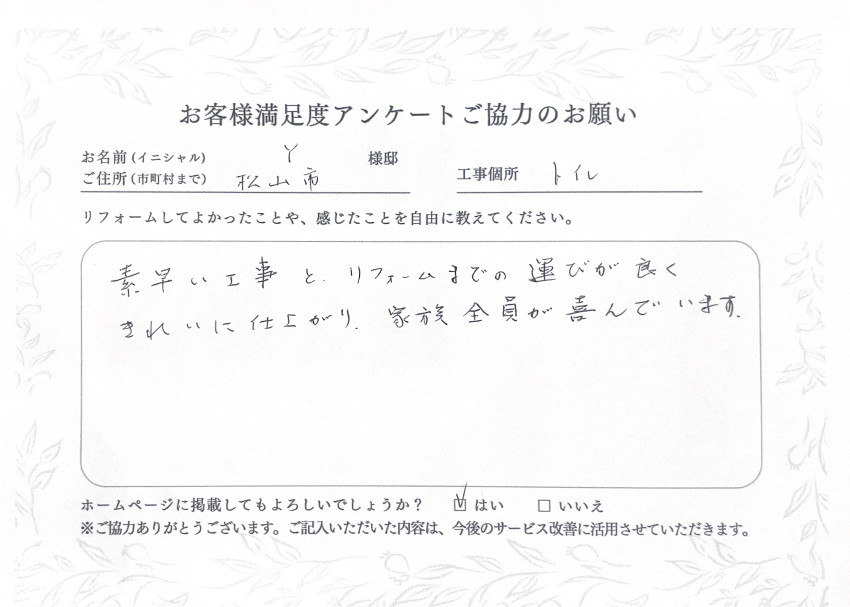 お客様満足度アンケートご協力のお願い
お名前(イニシャル) Y 様邸
ご住所(市町村まで) 松山市
工事個所 トイレ
リフォームしてよかったことや、感じたことを自由に教えてください。
素早い工事と、リフォームまでの運びが良く
きれいに仕上がり、家族全員が喜んでいます。
ホームページに掲載してもよろしいでしょうか？ ☑ はい □ いいえ
※ご協力ありがとうございます。ご記入いただいた内容は、今後のサービス改善に活用させていただきます。